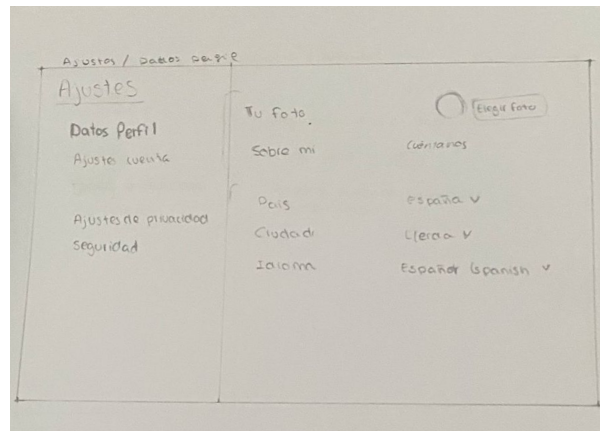 Ajustes / Datos
Ajustes
Datos Perfil
Ajustes cuenta
Ajustes de privacidad
Seguridad
Tu foto.
Elegir foto
Sobre mi
Cuéntanos
Pais
España v
Ciudad
Lleida v
Idioma
Español Spanish v